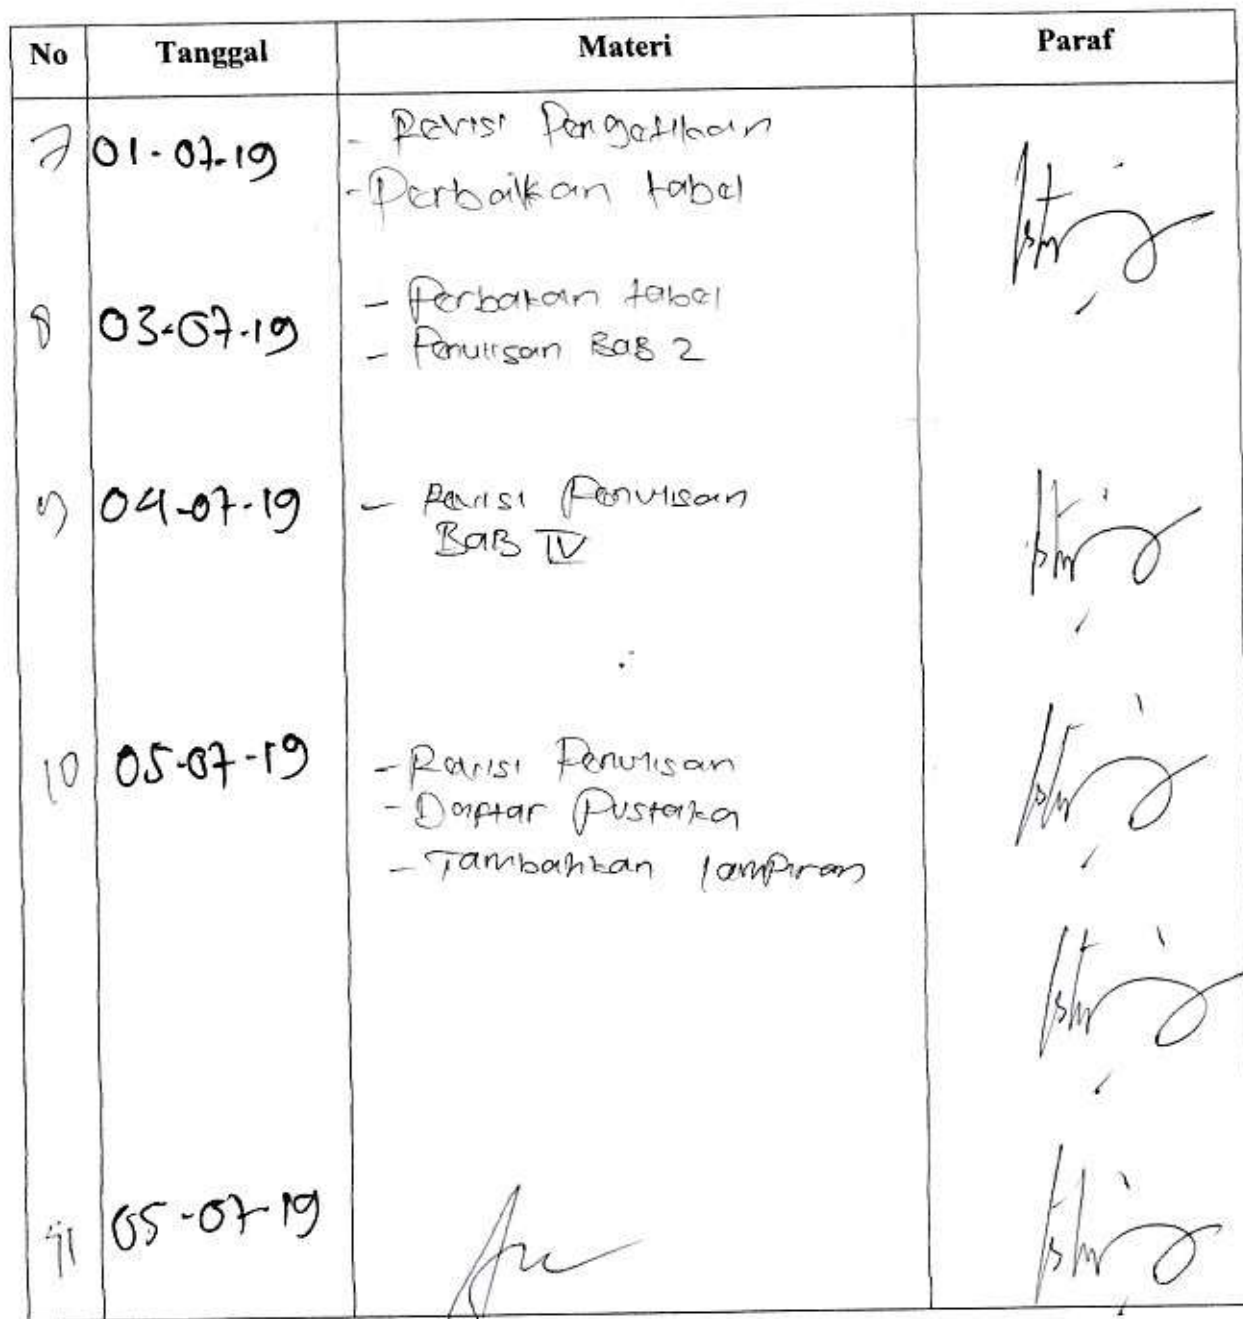 No Tanggal Materi Paraf
7 01-07-19 - Revisi Pengetikan
- Perbaikan tabel
8 03-07-19 - Perbakan tabel
- Penulisan BAB 2
9 04-07-19 - Revisi Penulisan
BAB IV
10 05-07-19 - Revisi Penulisan
- Daftar Pustaka
- Tambahkan lampiran
11 05-07-19